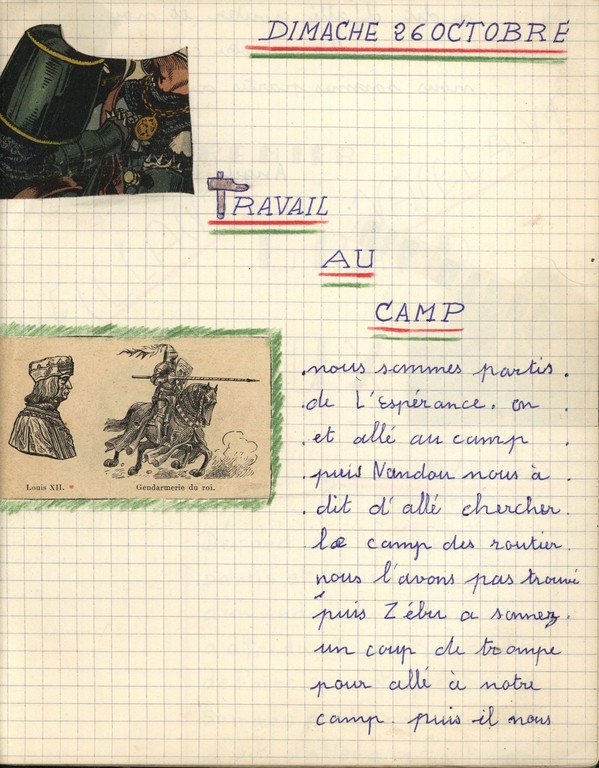 DIMACHE 26 OCTOBRE
TRAVAIL
AU
CAMP
Louis XII.
Gendarmerie du roi.
nous sommes partis
de L'espérance. on
et allé au camp
puis Nandou nous à
dit d'allé chercher
le camp des routier.
nous l'avons pas trouvé
puis Zébu a sonnez
un coup de trompe
pour allé à notre
camp. puis il nous